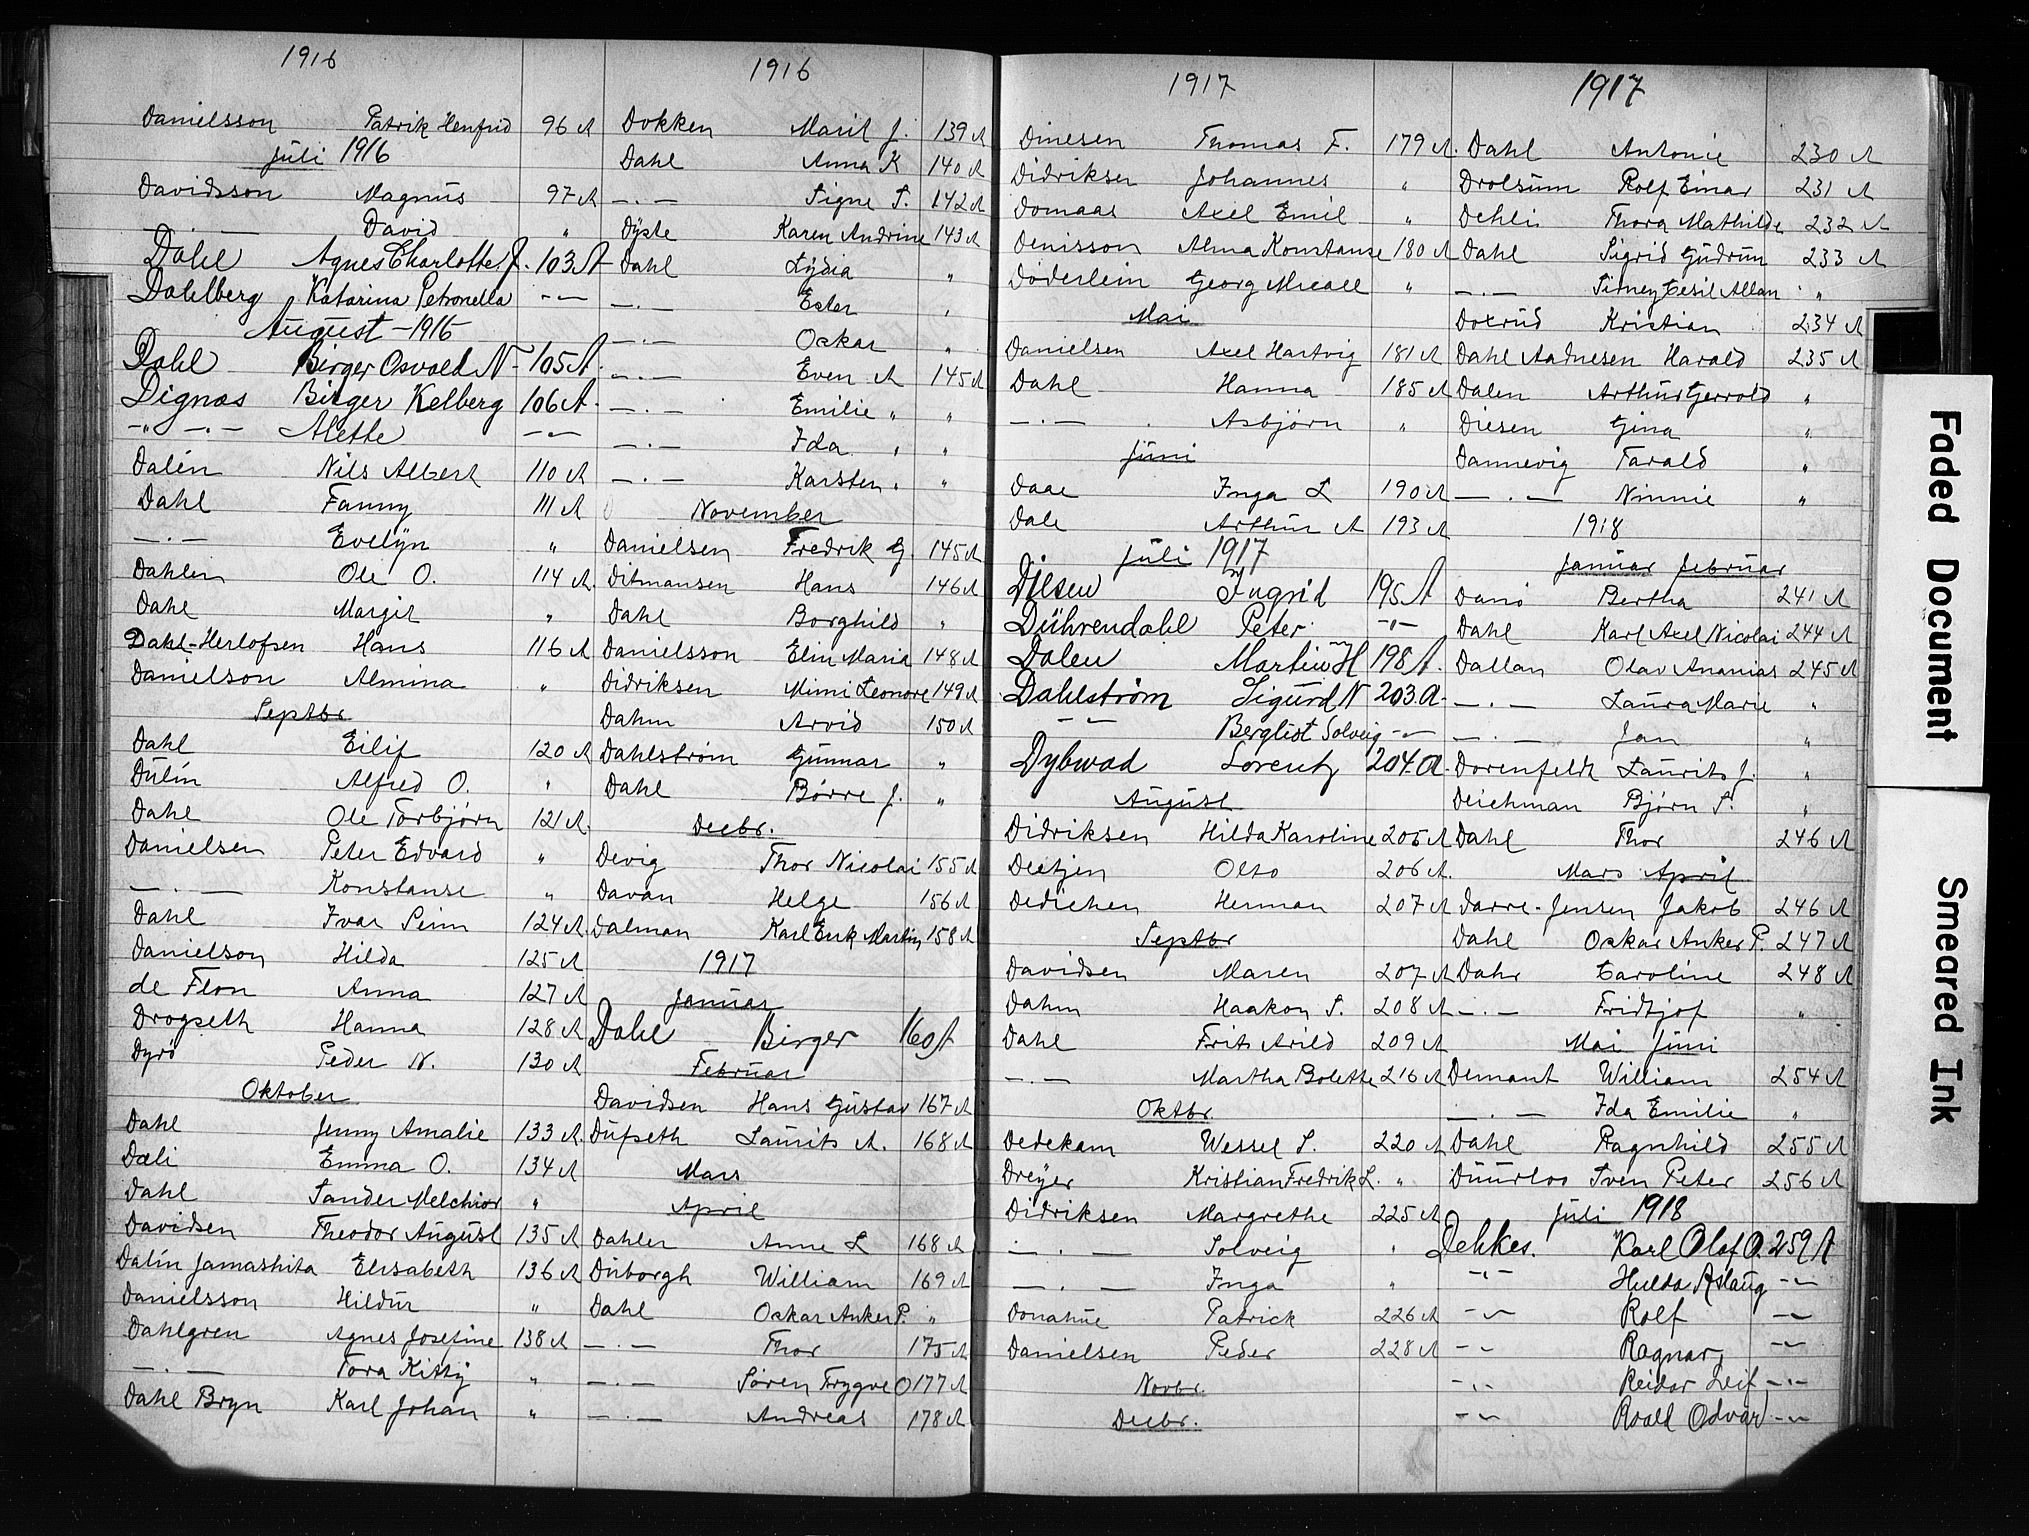 1916
Danielsson Patrik Henfrid 96 A
Juli 1916
Davidsson Magnus 97 A
— . — David "
Dahl Agnes Charlotte J. 103 A
Dahlberg Katarina Petronella -"-
August - 1916
Dahl Birger Osvald N 105 A.
Dignæs Birger Kelberg 106 A.
-"- -.- Alette -"-
Dalén Nils Albert 110 A
Dahl Fanny 111 A
— . — Evelyn "
Dahlen Ole O. 114 A
Dahl Margit "
Dahl-Herlofsen Hans 116 A
Danielson Almina "
Septbr
Dahl Eilif 120 A
Dulin Alfred O. "
Dahl Ole Torbjørn 121 A.
Danielsen Peter Edvard "
— . — Konstanse "
Dahl Ivar Sinn 124 A
Danielson Hilda 125 A
de Flon Anna 127 A
Drogseth Hanna 128 A
Dyrö Peder N. 130 A
Oktober
Dahl Jenny Amalie 133 A.
Dæli Emma O. 134 A
Dahl Sander Melchior "
Davidsen Theodor August 135 A
Dalin Jamashita Elisabeth 136 A
Danielsson Hildur "
Dahlgren Agnes Josefine 138 A
— . — Tora Kitty "
Dahl Bryn Karl Johan "
1916
Dokken Marit J. 139 A
Dahl Anna K 140 A
— . — Signe S. 142 A
Dyste Karen Andrine 143 A
Dahl Lydia "
— . — Ester "
— . — Oskar "
— . — Even A 145 A
— . — Emilie " "
— . — Ida " "
— . — Karsten " "
November
Danielsen Fredrik G. 145 A
Ditmansen Hans 146 A
Dahl Borghild "
Danielsson Elin Maria 148 A
Didriksen Mimi Leonore 149 A
Dahm Arvid 150 A
Dahlstrøm Gunnar "
Dahl Børre J. "
Decbr.
Devig Thor Nicolai 155 A
Davan Helge 156 A
Dalman Karl Erik Martin 158 A
1917
Januar
Dahl Birger 160 A
Februar
Davidsen Hans Gustav 167 A
Dufseth Laurits A. 168 A
Mars
April
Dahler Anne L 168 A
Duborgh William 169 A
Dahl Oskar Anker P. "
— . — Thor 175 A
— . — Søren Trygve O 177 A
— . — Andreas 178 A
1917
Dinesen Thomas F. 179 A.
Didriksen Johannes "
Domaas Axel Emil "
Denisson Alma Konstanse 180 A
Döderlein Georg Micael "
Mai
Danielsen Axel Hartvig 181 A
Dahl Hanna 185 A
— . — Asbjørn "
Juni
Daae Inga L 190 A
Dale Arthur A 193 A
Juli 1917
Dilsen Ingrid 195 A
Dührendahl Peter -"-
Dalen Martin H 198 A.
Dahlström Sigurd N 203 A.
-"- Bergliot Solveig -"-
Dybwad Lorentz 204 A.
August
Didriksen Hilda Karoline 205 A
Dietjen Otto 206 A.
Dedichen Herman 207 A
Septbr
Davidsen Maren 207 A
Dahm Haakon S. 208 A
Dahl Frits Arild 209 A
— . — Martha Bolette 216 A
Oktbr.
Dedekam Wessel S. 220 A
Dreyer Kristian Fredrik L. "
Didriksen Margrethe 225 A
— . — Solveig "
— . — Inga "
Donahue Patrick 226 A
Danielsen Peder 228 A
Novbr.
Decbr.
1917
Dahl Antonie 230 A
Drolsum Rolf Einar 231 A
Dehli Thora Mathilde 232 A
Dahl Sigrid Gudrun 233 A
— . — Sidney Cesil Allan "
Doxrud Kristian 234 A
Dahl Aadnesen Harald 235 A
Dalen Arthur Gerrold "
Diesen Gina "
Dannevig Tarald "
— . — Ninnie "
1918
Januar Februar
Danö Bertha 241 A
Dahl Karl Axel Nicolai 244 A
Dallan Olav Ananias 245 A
— . — Laura Marie "
— . — Jan "
Dorenfeldt Laurits J. "
Deichman Bjørn S. "
Dahl Thor 246 A
Mars April
Darre-Jensen Jakob 246 A
Dahl Oskar Anker P. 247 A
Dahr Caroline 248 A
— . — Fridtjof "
Mai Juni
Demant William 254 A
— . — Ida Emilie "
Dahl Ragnhild 255 A
Duurloo Sven Peter 256 A
Juli 1918
Dekkes. Karl Olaf O. 259 A
-"- Hulda Aslaug -"-
-"- Rolf -"-
-"- Ragnar -"-
-"- Reidar Leif -"-
-"- Roald Odvar -"-
Faded Document
Smeared Ink